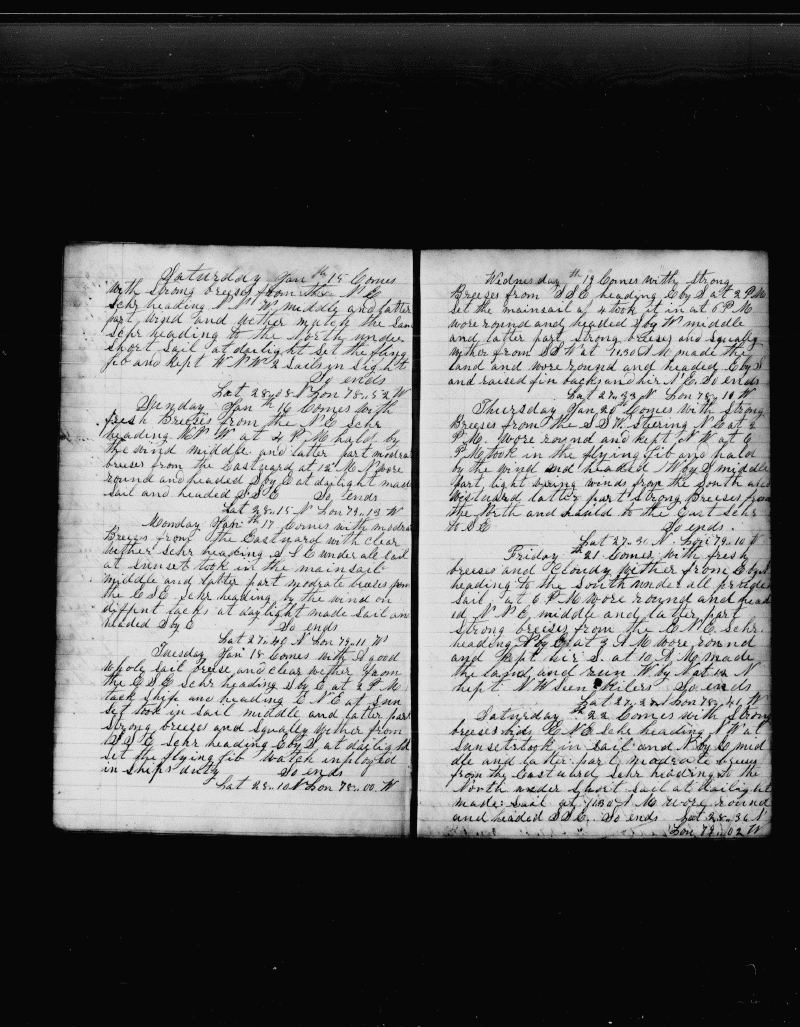 Saturday Jan th 15 Comes
with Strong breeses from the N E
Schr heading N N W middle and latter
part wind and wether mutch the Sam
Schr heading to the North under
Short Sail at dailight Set the flying
jib and kept W N W 2 Sails in Sight
So ends
Lat 28..08 N Lon 78..52 W
Sunday Jan th 16 Comes with
fresh Breeses from the N E Schr
heading N W at 4 P M hald by
the wind middle and latter part modrat
breeses from the Eastward at 12 M wore
round and headed S by E at daylight made
Sail and headed S S E So ends
Lat 28..15 N Lon 79..13 W
Monday Jan th 17 Comes with modra
Breses from the Eastward with clear
wether Schr heading S S E under all Sail
at sunset took in the mainsail
middle and latter part modrate breeses from
the E S E Schr heading by the wind on
diffrent tacks at daylight made Sail an
headed S by E So ends
Lat 27..40 N Lon 79..11 W
Tuesday Jan 18 Comes with a good
wholy Sail breese and clear wether from
the E S E Schr heading S by E at 2 P M
tack Ship and heading E N E at Sun
Set took in Sail middle and latter part
Strong breeses and Squally wether from
S S E Schr heading E by S at daylight
Set the flying jib Watch imployed
in Ships duty So ends
Lat 28..10 N Lon 78..00 W
Wednesday th 19 Comes with Strong
Breeses from S S E heading E by S at 2 P M
Set the mainsail at 4 took it in at 6 P M
wore round and headed S by W middle
and latter part Strong breeses and Squally
wether from S S W at 11.30 A M made the
land and wore round and headed E by S
and raised finbacks and hir N E So ends
Lat 27..33 N Lon 78..10 W
Thursday Jan 20 th Comes with Strong
Breeses from the S S W Steering N E at 2
P.M. wore round and kept N W at 6
P M took in the flying jib and hald
by the wind and headed W by S middle
part light Spring winds from the South and
Westward latter part Strong Breeses from
the North and hauld to the East Schr
to S E So ends.
Lat 27..31 N Lon 79..10 W
Friday th 21 Comes with fresh
breeses and Cloudy wether from E by S
heading to the South under all provided
Sail at 6 P M wore round and head
ed N N E middle and latter part
Strong breeses from the E N E Schr.
heading N by E at 3 A M wore round
and kept hir S. at 10 A M made
the land and run W by N at 12 N
kept N W So ends
Lat 27..22 N Lon 78..41 W
Saturday th 22 Comes with Strong
breeses E N E Schr heading N W at
Sunset took in Sail and N by E mid
dle and latter part modrate breeses
from the Eastward Schr heading to the
North under Short Sail at dailight
made Sail at 11.30 A M wore round
and headed S S E. So ends Lat 28..36 N
Lon 79..02 W